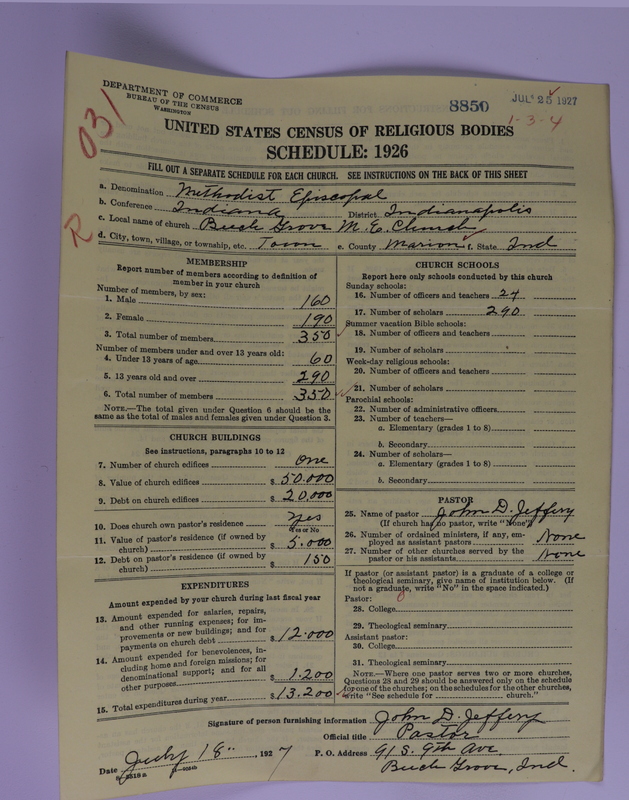 DEPARTMENT OF COMMERCE
BUREAU OF THE CENSUS
WASHINGTON
031
8850
JUL 25 1927
1-3-4
UNITED STATES CENSUS OF RELIGIOUS BODIES
SCHEDULE: 1926
FILL OUT A SEPARATE SCHEDULE FOR EACH CHURCH. SEE INSTRUCTIONS ON THE BACK OF THIS SHEET
a. Denomination Methodist Episcopal
b. Conference Indiana District Indianapolis
c. Local name of church Beech Grove M. E. Church
R
d. City, town, village, or township, etc. Town e. County Marion f. State Ind
MEMBERSHIP
Report number of members according to definition of
member in your church
Number of members, by sex:
1. Male 160
2. Female 190
3. Total number of members 350
Number of members under and over 13 years old:
4. Under 13 years of age 60
5. 13 years old and over 290
6. Total number of members 350
NOTE.—The total given under Question 6 should be the
same as the total of males and females given under Question 3.
CHURCH BUILDINGS
See instructions, paragraphs 10 to 12
7. Number of church edifices One
8. Value of church edifices $ 50.000
9. Debt on church edifices $ 20,000
10. Does church own pastor's residence Yes
Yes or No
11. Value of pastor's residence (if owned by
church) $ 5.000
12. Debt on pastor's residence (if owned by
church) $ 150
EXPENDITURES
Amount expended by your church during last fiscal year
13. Amount expended for salaries, repairs,
and other running expenses; for im-
provements or new buildings; and for
payments on church debt $ 12.000
14. Amount expended for benevolences, in-
cluding home and foreign missions; for
denominational support; and for all
other purposes $ 1.200
15. Total expenditures during year $ 13.200
CHURCH SCHOOLS
Report here only schools conducted by this church
Sunday schools:
16. Number of officers and teachers 24
17. Number of scholars 290
Summer vacation Bible schools:
18. Number of officers and teachers
19. Number of scholars
Week-day religious schools:
20. Number of officers and teachers
21. Number of scholars
Parochial schools:
22. Number of administrative officers
23. Number of teachers—
a. Elementary (grades 1 to 8)
b. Secondary
24. Number of scholars—
a. Elementary (grades 1 to 8)
b. Secondary
PASTOR
25. Name of pastor John D. Jeffery
(If church has no pastor, write "None")
26. Number of ordained ministers, if any, em-
ployed as assistant pastors None
27. Number of other churches served by the
pastor or his assistants None
If pastor (or assistant pastor) is a graduate of a college or
theological seminary, give name of institution below. (If
not a graduate, write "No" in the space indicated.)
Pastor:
28. College
29. Theological seminary
Assistant pastor:
30. College
31. Theological seminary
NOTE.—Where one pastor serves two or more churches,
Questions 28 and 29 should be answered only on the schedule
for one of the churches; on the schedules for the other churches,
write "See schedule for church."
Signature of person furnishing information John D. Jeffery
Official title Pastor
Date July 18 , 1927 P. O. Address 91 S. 9th Ave.
Beech Grove, Ind.